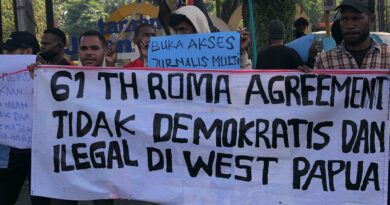 BUKA AKSES
JURNALIS MULTI
61 TH ROMA AGREEMENT
TIDAK DEMOKRATIS DAN
ILEGAL DI WEST PAPUA